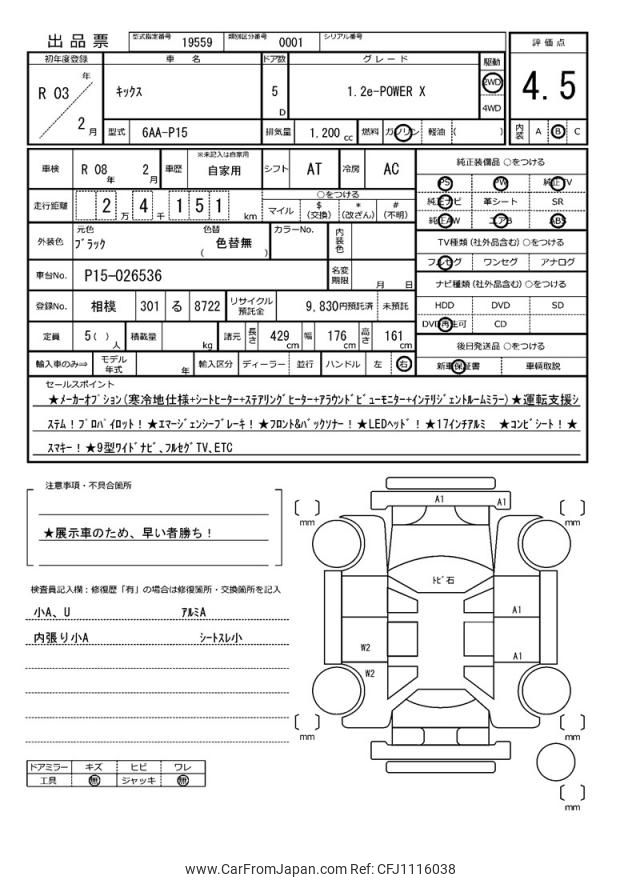 出品票 型式指定番号 19559 類別区分番号 0001 シリアル番号
評価点
4.5
内装 A B C
初年度登録 車名 ドア数 グレード 駆動
R 03 年 2 月 キックス 5 D 1.2e-POWER X 2WD 4WD
型式 6AA-P15 排気量 1.200 cc 燃料 ガソリン 軽油 ( )
車検 R 08 年 2 月 車歴 ※未記入は自家用 自家用 シフト AT 冷房 AC
走行距離 2 万 4 千 1 5 1 km ○をつける
マイル $ (交換) * (改ざん) # (不明)
外装色 元色 ブラック 色替 色替無 ( ) カラーNo. 内装色
車台No. P15-026536 名変期限 月 日
登録No. 相模 301 る 8722 リサイクル預託金 9,830円預託済 未預託
定員 5( ) 人 積載量 kg 諸元 長さ 429 cm 幅 176 cm 高さ 161 cm
輸入車のみ⇒ モデル年式 年 輸入区分 ディーラー 並行 ハンドル 左 右
純正装備品 ○をつける
PS PW 純正TV
純正ナビ 革シート SR
純正AW エアB ABS
TV種類 (社外品含む) ○をつける
フルセグ ワンセグ アナログ
ナビ種類 (社外品含む) ○をつける
HDD DVD SD
DVD再生可 CD
後日発送品 ○をつける
新車保証書 車輌取説
セールスポイント
★メーカーオプション(寒冷地仕様+シートヒーター+ステアリングヒーター+アラウンドビューモニター+インテリジェントルームミラー)★運転支援シ
ステム!プロパイロット!★エマージェンシーブレーキ!★フロント&バックソナー!★LEDヘッド!★17インチアルミ ★コンビシート!★
スマキー!★9型ワイドナビ、フルセグTV、ETC
注意事項・不具合箇所
★展示車のため、早い者勝ち!
検査員記入欄:修復歴「有」の場合は修復箇所・交換箇所を記入
小A、U アルミA
内張り小A シートスレ小
ドアミラー キズ ヒビ ワレ
工具 無 ジャッキ 無
A1 A1
mm mm
トビ石
A1
W2 A1
W2
mm mm
mm
www.CarFromJapan.com Ref: CFJ1116038